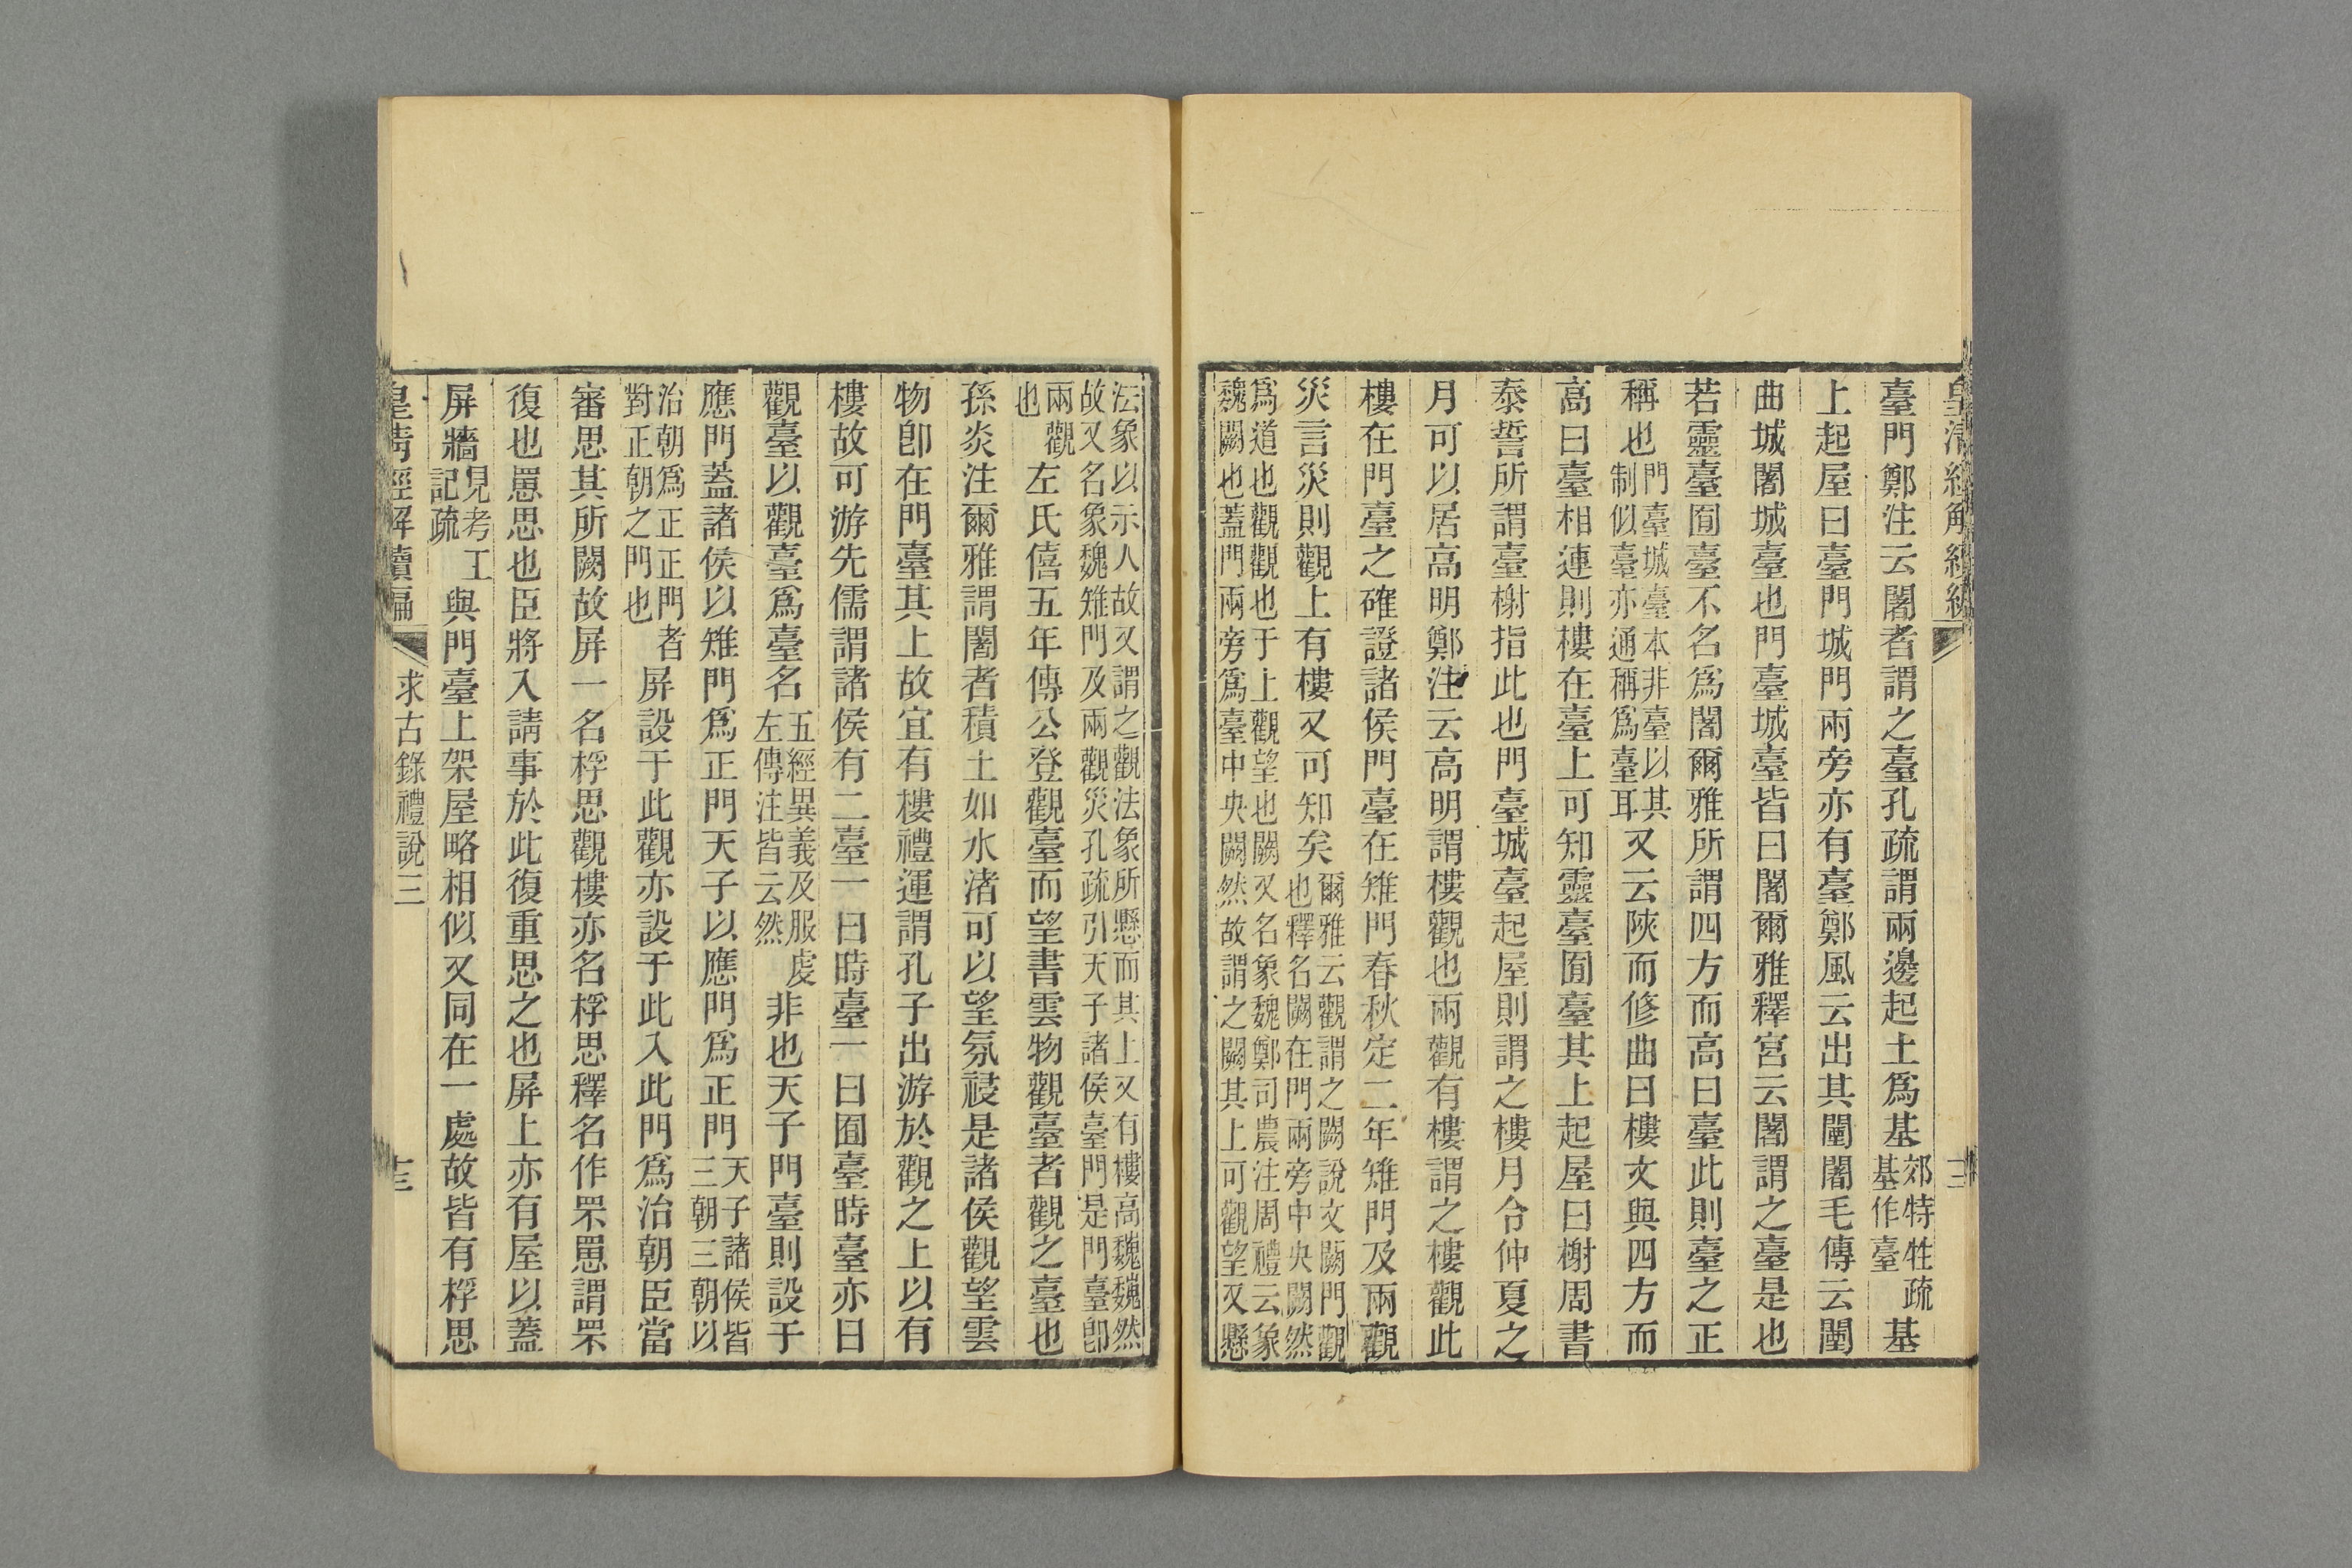 臺門鄭注云闍者謂之臺孔疏謂兩邊起土爲基郊特牲疏基作臺基
上起屋曰臺門城門兩旁亦有臺鄭風云出其闉闍毛傳云闉
曲城闍城臺也門臺城臺皆曰闍爾雅釋宮云闍謂之臺是也
若靈臺囿臺不名爲闍爾雅所謂四方而高曰臺此則臺之正
稱也門臺城臺本非臺以其制似臺亦通稱爲臺耳又云陜而修曲曰樓文與四方而
高曰臺相連則樓在臺上可知靈臺囿臺其上起屋曰榭周書
泰誓所謂臺榭指此也門臺城臺起屋則謂之樓月令仲夏之
月可以居高明鄭注云高明謂樓觀也兩觀有樓謂之樓觀此
樓在門臺之確證諸侯門臺在雉門春秋定二年雉門及兩觀
災言災則觀上有樓又可知矣爾雅云觀謂之闕說文闕門觀也釋名闕在門兩旁中央闕然
爲道也觀觀也于上觀望也闕又名象魏鄭司農注周禮云象魏闕也蓋門兩旁爲臺中央闕然故謂之闕其上可觀望又懸
法象以示人故又謂之觀法象所懸而其上又有樓高魏魏然故又名象魏雉門及兩觀災孔疏引天子諸侯臺門是門臺卽
兩觀也左氏僖五年傳公登觀臺而望書雲物觀臺者觀之臺也
孫炎注爾雅謂闍者積土如水渚可以望氛祲是諸侯觀望雲
物卽在門臺其上故宜有樓禮運謂孔子出游於觀之上以有
樓故可游先儒謂諸侯有二臺一曰時臺一曰囿臺時臺亦曰
觀臺以觀臺爲臺名五經異義及服虔左傳注皆云然非也天子門臺則設于
應門蓋諸侯以雉門爲正門天子以應門爲正門天子諸侯皆三朝三朝以
治朝爲正正門者對正朝之門也屏設于此觀亦設于此入此門爲治朝臣當
審思其所闕故屏一名桴思觀樓亦名桴思釋名作罘罳謂罘
復也罳思也臣將入請事於此復重思之也屏上亦有屋以蓋
屏牆見考工記疏與門臺上架屋略相似又同在一處故皆有桴思
皇清經解續編 求古錄禮說三 十三